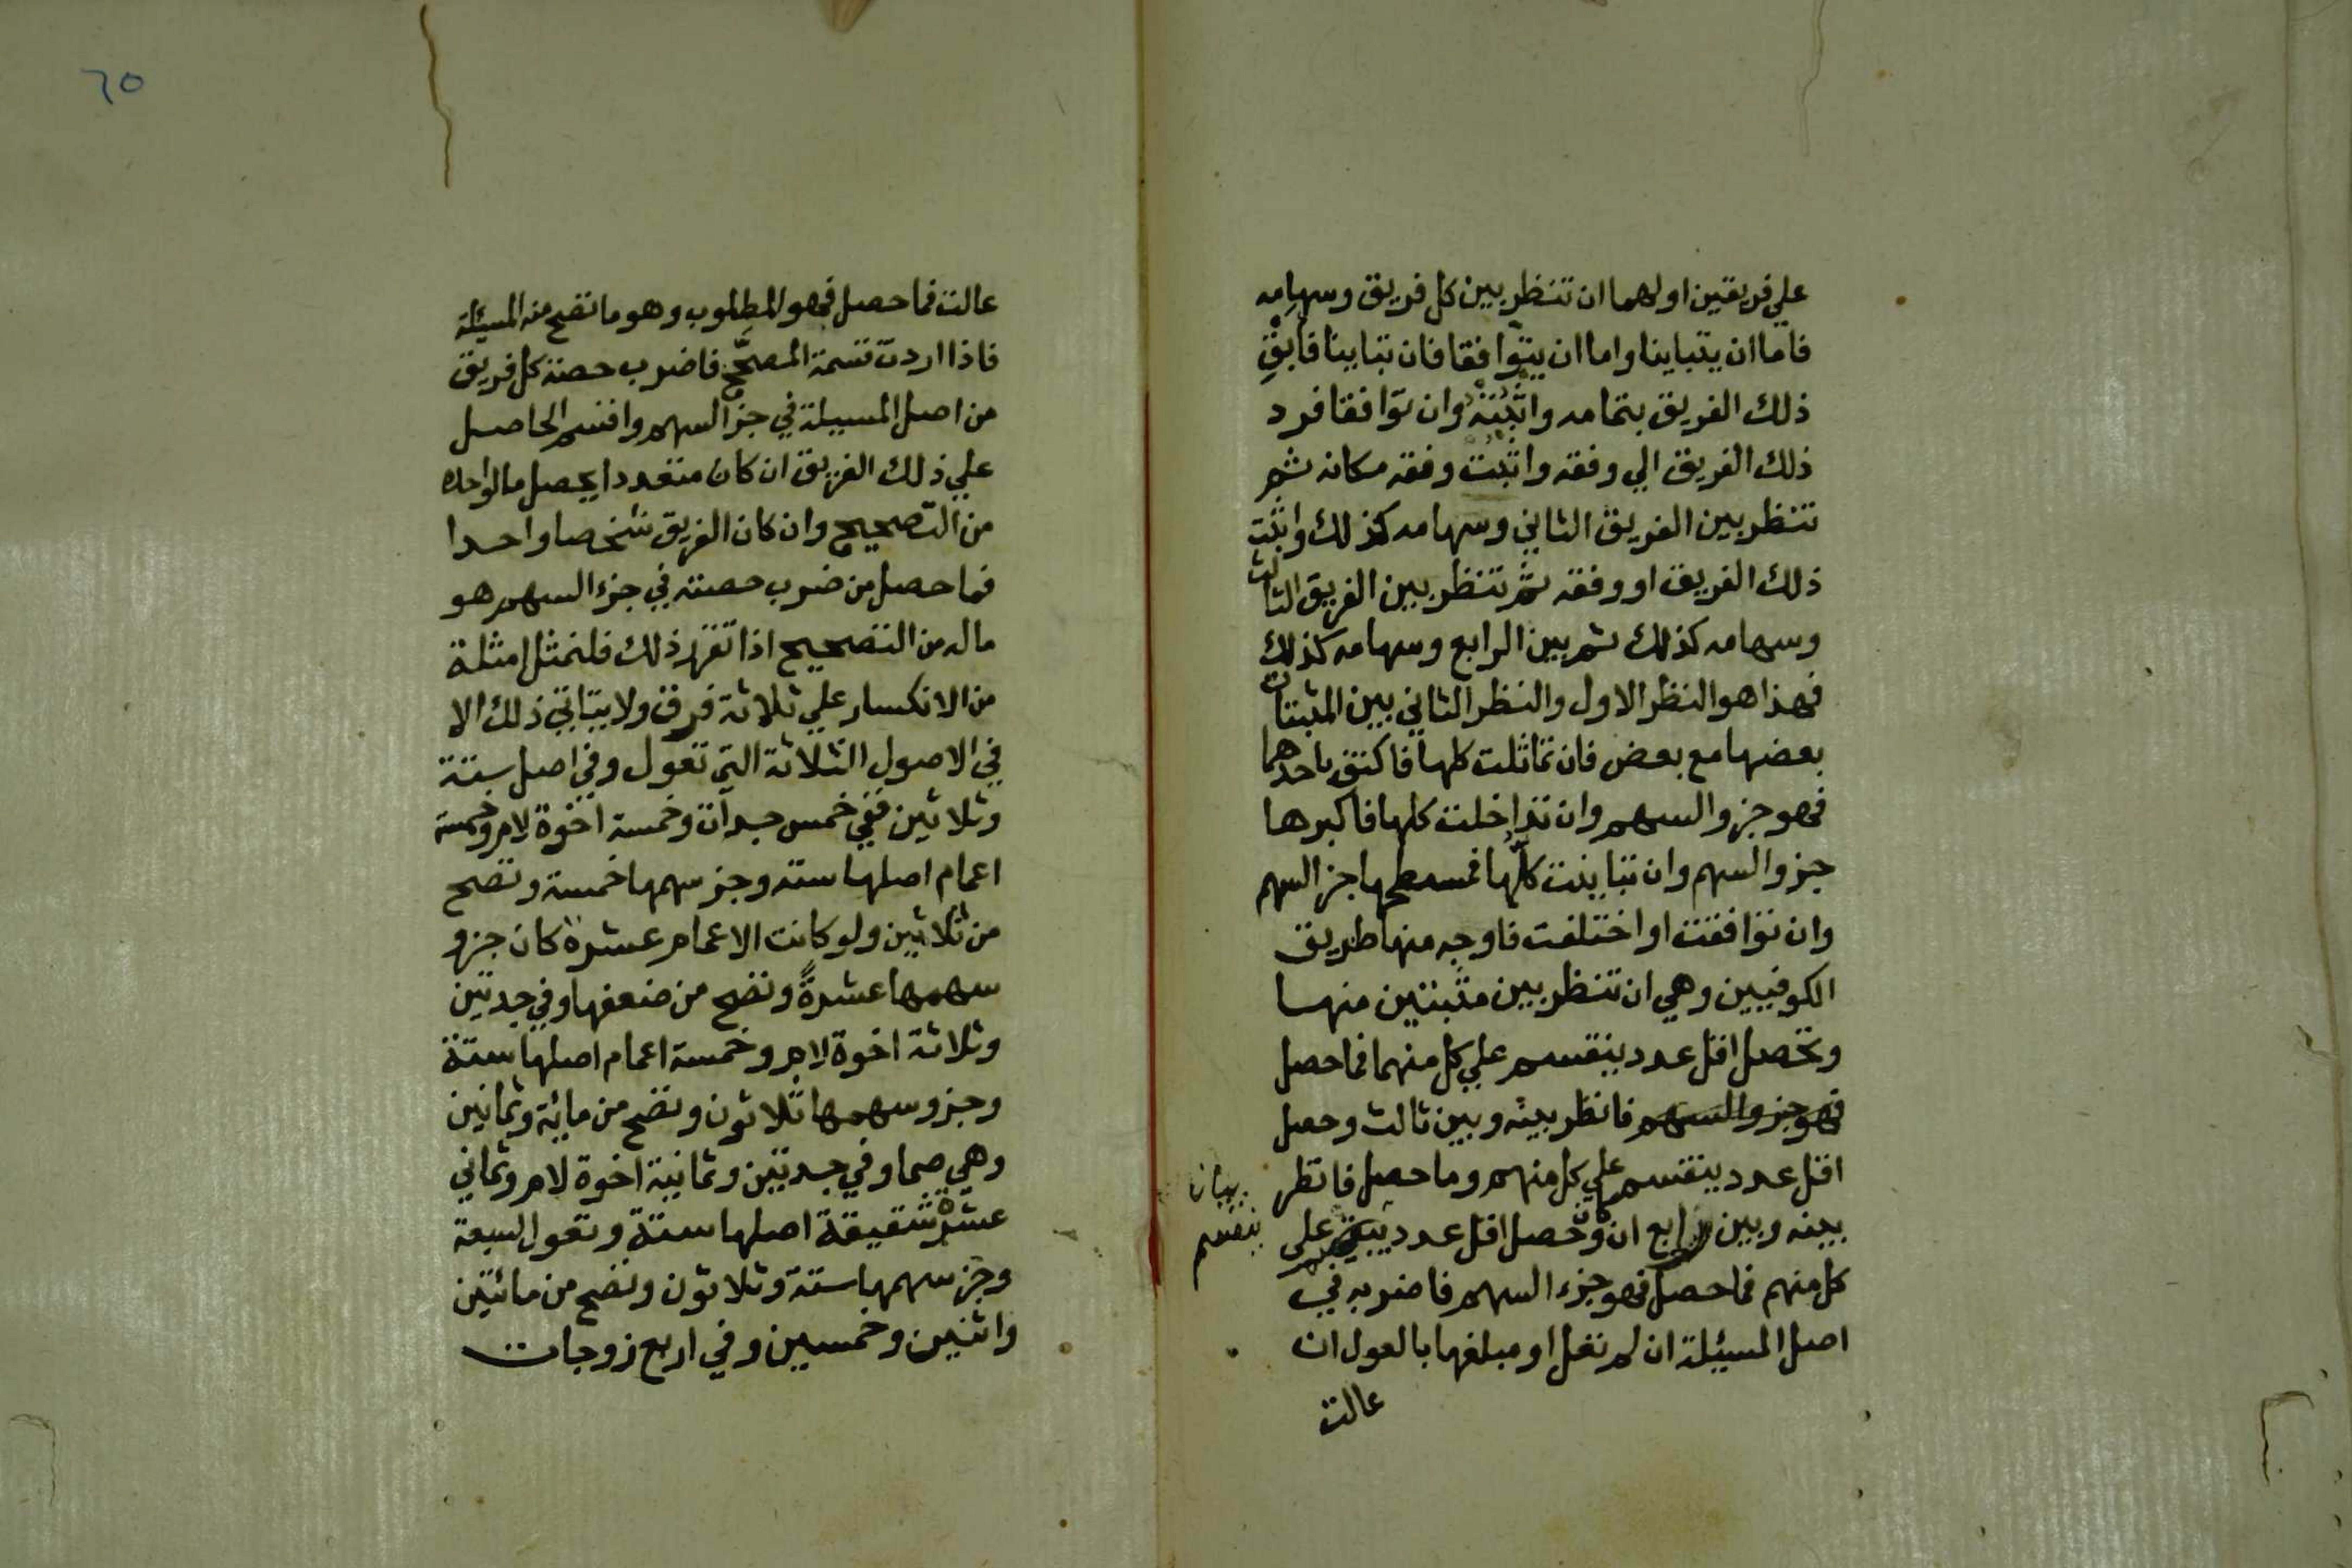 علي فريقين اولهما ان تنظر بين كل فريق وسهامه
فاما ان يتباينا واما ان يتوافقا فان تباينا فابق
ذلك الفريق بتمامه واثبته وان توافقا فرد
ذلك الفريق الي وفقه واثبت وفقه مكانه ثم
تنظر بين الفريق الثاني وسهامه كذلك واثبت
ذلك الفريق او وفقه ثم تنظر بين الفريق الثالث
وسهامه كذلك ثم بين الرابع وسهامه كذلك
فهذا هو النظر الاول والنظر الثاني بين المثبتات
بعضها مع بعض فان تماثلت كلها فاكتف باحدهما
فهو جزو السهم وان تداخلت كلها فاكبرها
جزو السهم وان تباينت كلها فمسطحها جز السهم
وان توافقت او اختلفت فاوجه منها طريق
الكوفيين وهي ان تنظر بين مثبتين منها
وتحصل اقل عدد ينقسم علي كل منهما فما حصل
فهو جزو السهم فانظر بينه وبين ثالث وحصل
اقل عدد ينقسم علي كل منهم وما حصل فانظر
بينه وبين رابع ان كان وتحصل اقل عدد ينقسم على
بيان
ينقسم
كل منهم فما حصل فهو جزء السهم فاضربه في
اصل المسئلة ان لم تعل او مبلغها بالعول ان
عالت
٦٥
عالت فما حصل فهو المطلوب وهو ما تصح منه المسئلة
فاذا اردت قسمة المصحح فاضرب حصة كل فريق
من اصل المسيلة في جز السهم واقسم الحاصل
علي ذلك الفريق ان كان متعددا يحصل ما لواحده
من التصحيح وان كان الفريق شخصا واحدا
فما حصل من ضرب حصته في جزء السهم هو
ماله من التصحيح اذا تقرر ذلك فلنمثل امثلة
من الانكسار علي ثلاثة فرق ولا يتاتي ذلك الا
في الاصول الثلاثة التي تعول وفي اصل ستة
وثلاثين ففي خمس جدات وخمسة اخوة لام وخمسة
اعمام اصلها ستة وجز سهمها خمسة وتصح
من ثلاثين ولو كانت الاعمام عشرة كان جزو
سهمها عشرة وتصح من ضعفها وفي جدتين
وثلاثة اخوة لام وخمسة اعمام اصلها ستة
وجزو سهمها ثلاثون وتصح من مائة وثمانين
وهي صما وفي جدتين وثمانية اخوة لام وثماني
عشرة شقيقة اصلها ستة وتعول لسبعة
وجز سهمها ستة وثلاثون وتصح من مائتين
واثنين وخمسين وفي اربع زوجات